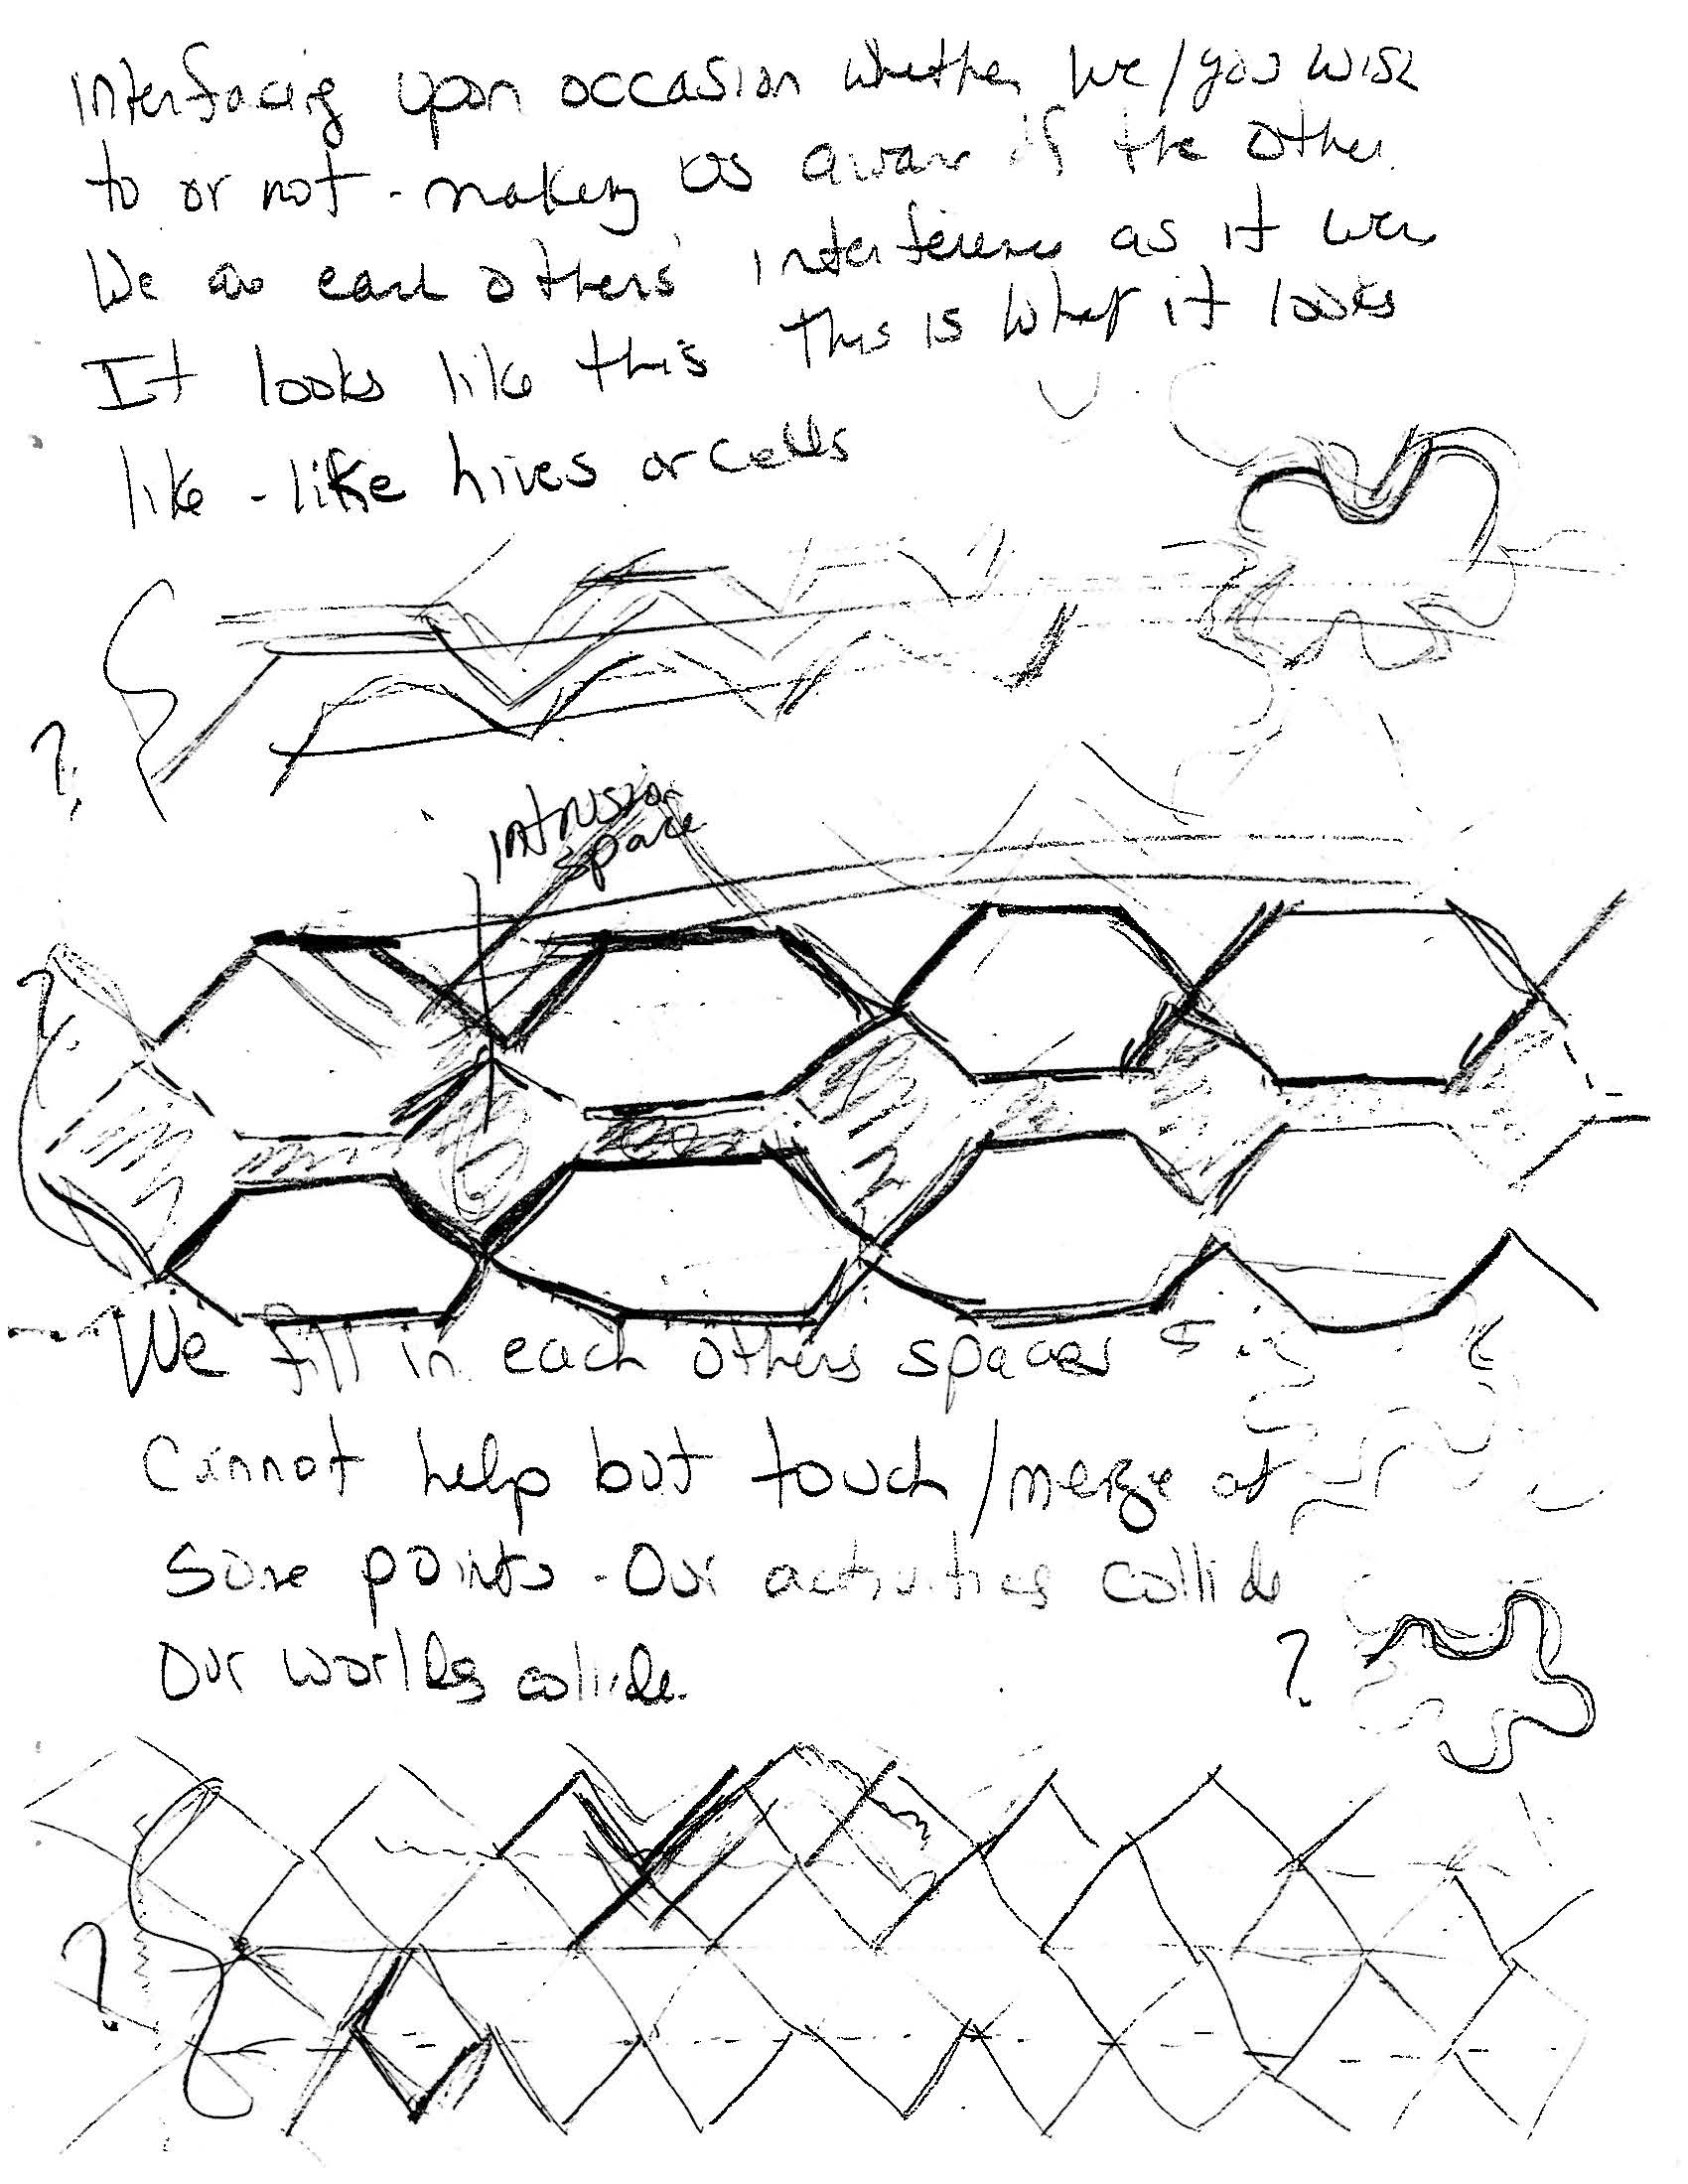 Interfacing upon occasion whether we/you wish
to or not - making us aware of the other.
We are each others' interference as it were
It looks like this This is what it looks
like - like hives or cells
?
Intrusion
space
?
We fill in each others spaces
Cannot help but touch/merge at
some points - Our activities collide
Our worlds collide.
?
?